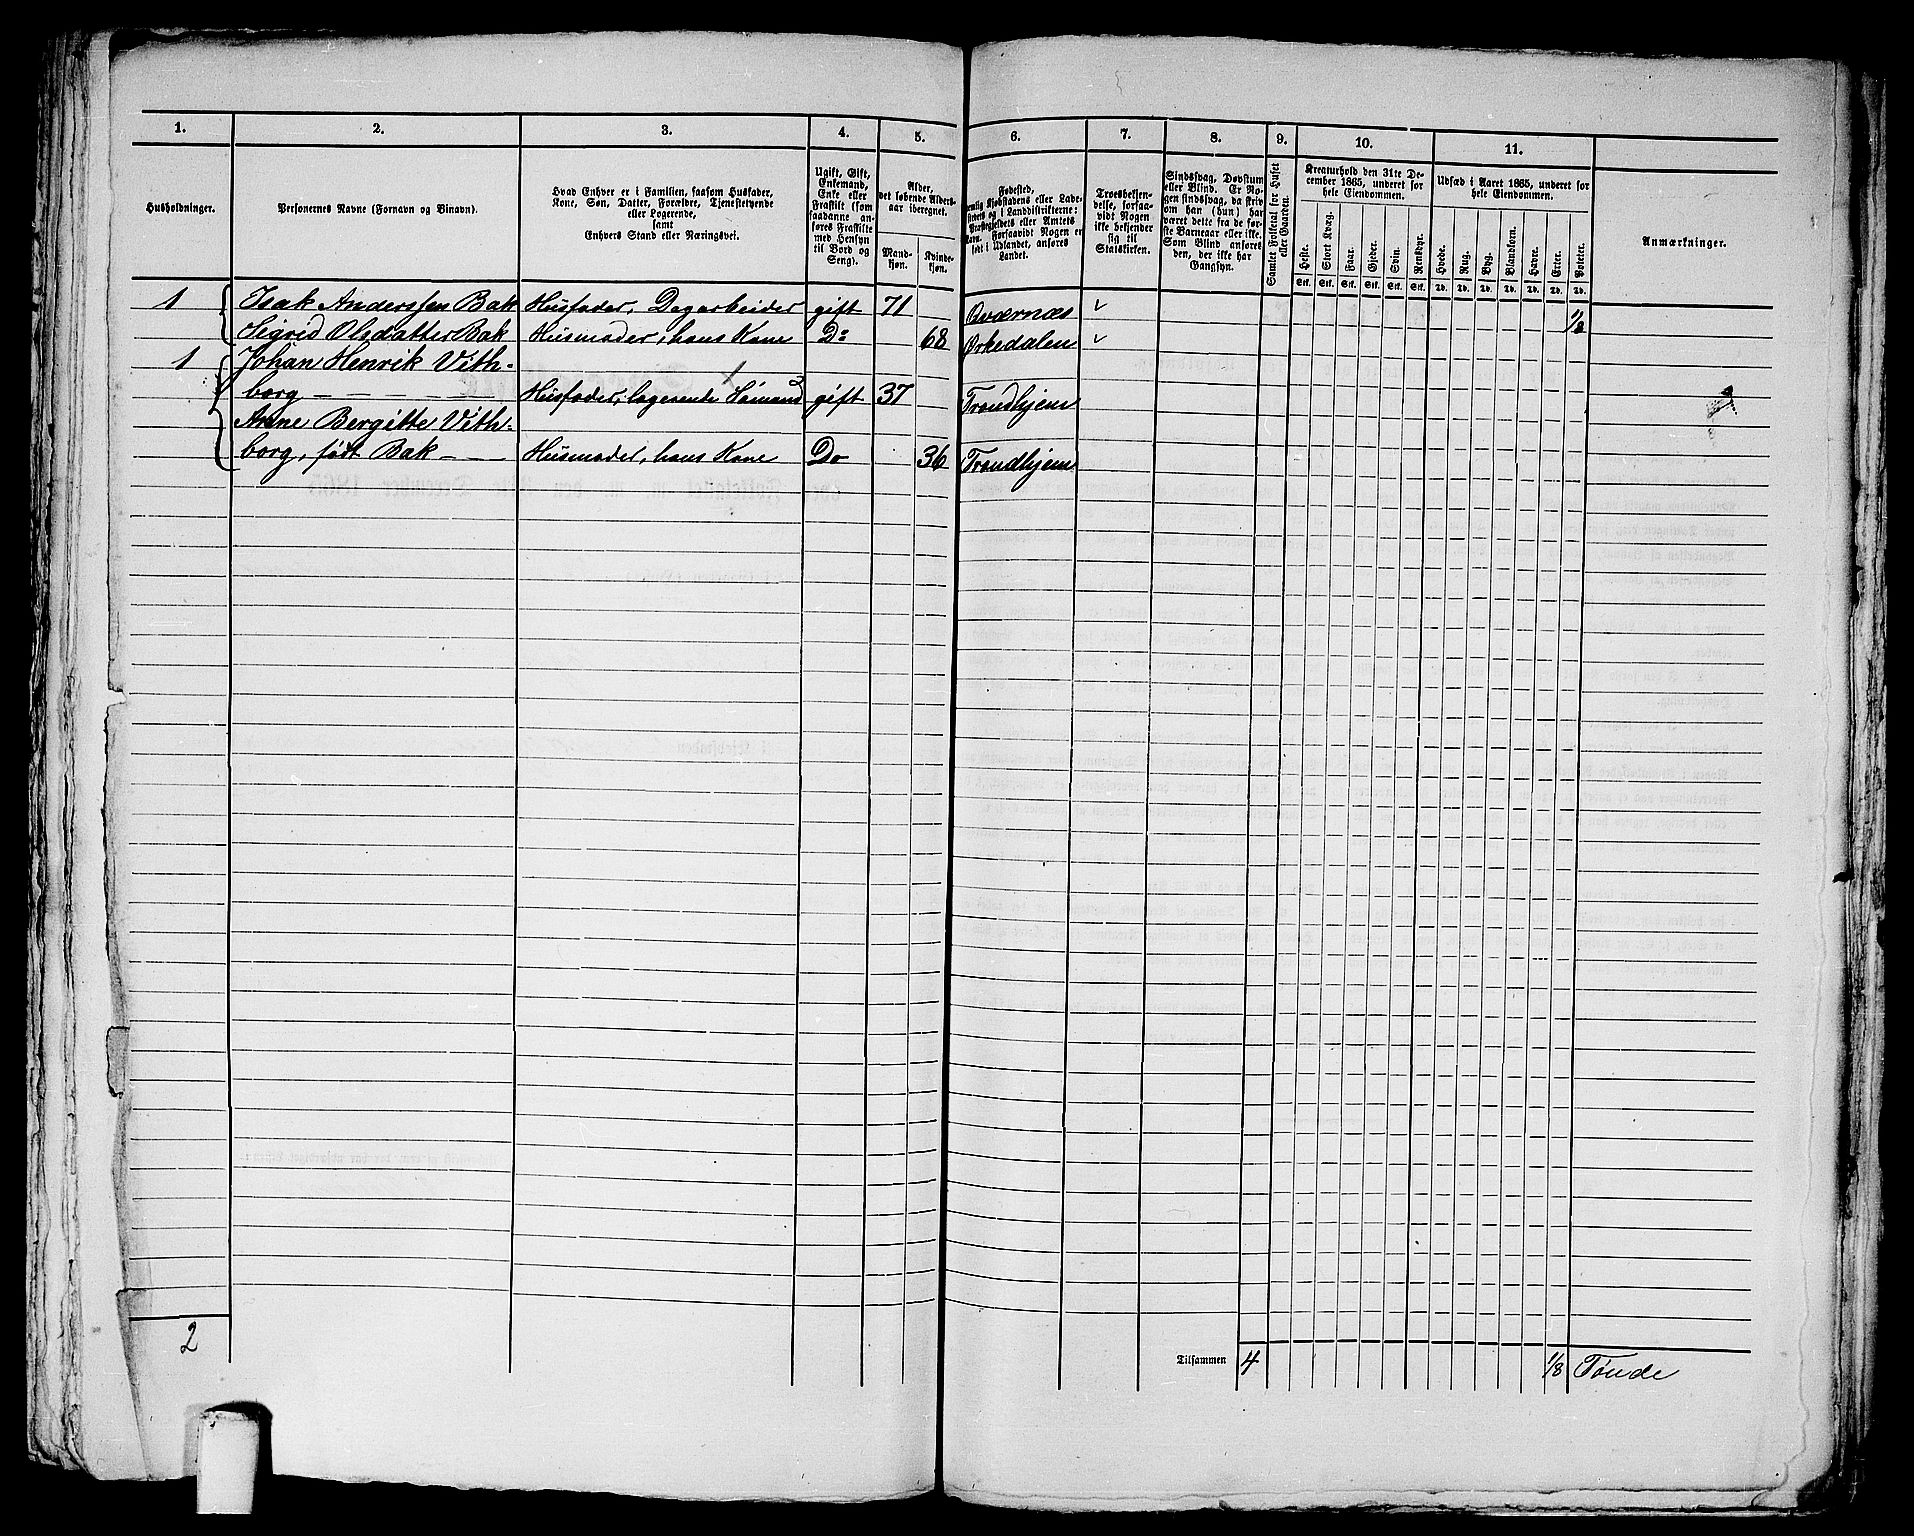 1. 2. 3. 4. 5. 6. 7. 8. 9. 10. 11.
Husholdninger.
Personernes Navne (Fornavn og Binavn).
Hvad Enhver er i Familien, saasom Husfader,
Kone, Søn, Datter, Forældre, Tjenestetyende
eller Logerende,
samt
Enhvers Stand eller Næringsvei.
Ugift, Gift,
Enkemand,
Enke eller
Fraskilt (som
saadanne an-
føres Fraskilte
med Hensyn
til Bord og
Seng).
Alder,
det løbende Alders-
aar iberegnet.
Mand-
kjøn.
Kvinde-
kjøn.
Fødested,
nemlig Kjøbstadens eller Lade-
stedets og i Landdistrikterne:
Præstegjeldets eller Amtets
Navn. Forsaavidt Nogen er
født i Udlandet, anføres
Landet.
Troesbekjen-
delse, forsaa-
vidt Nogen
ikke bekjender
sig til
Statskirken.
Sindssvag, Døvstum
eller Blind. Er No-
gen sindssvag, da skriv
om han (hun) har
været dette fra de før-
ste Barneaar eller ikke.
Som Blind anføres
den, der ikke har
Gangsyn.
Samlet Folketal for Huset
eller Gaarden.
Kreaturhold den 31te De-
cember 1865, underet for
hele Eiendommen.
Heste. Stort Kvæg. Faar. Gjeder. Svin. Rensdyr.
Stk. Stk. Stk. Stk. Stk. Stk.
Udsæd i Aaret 1865, underet for
hele Eiendommen.
Hvede. Rug. Byg. Blandkorn. Havre. Erter. Poteter.
Td. Td. Td. Td. Td. Td. Td.
Anmærkninger.
1 Isak Anderssen Bak Husfader, Dagarbeider gift 71 Qværnæs 1/8
Sigrid Olsdatter Bak Husmoder, hans Kone Do 68 Ørkedalen
1 Johan Henrik Vith-
borg Husfader, logerende Sømand gift 37 Trondhjem
Anne Bergitte Vith-
borg, født Bak Husmoder, hans Kone Do 36 Trondhjem
2 Tilsammen 4 1/8 Tønde